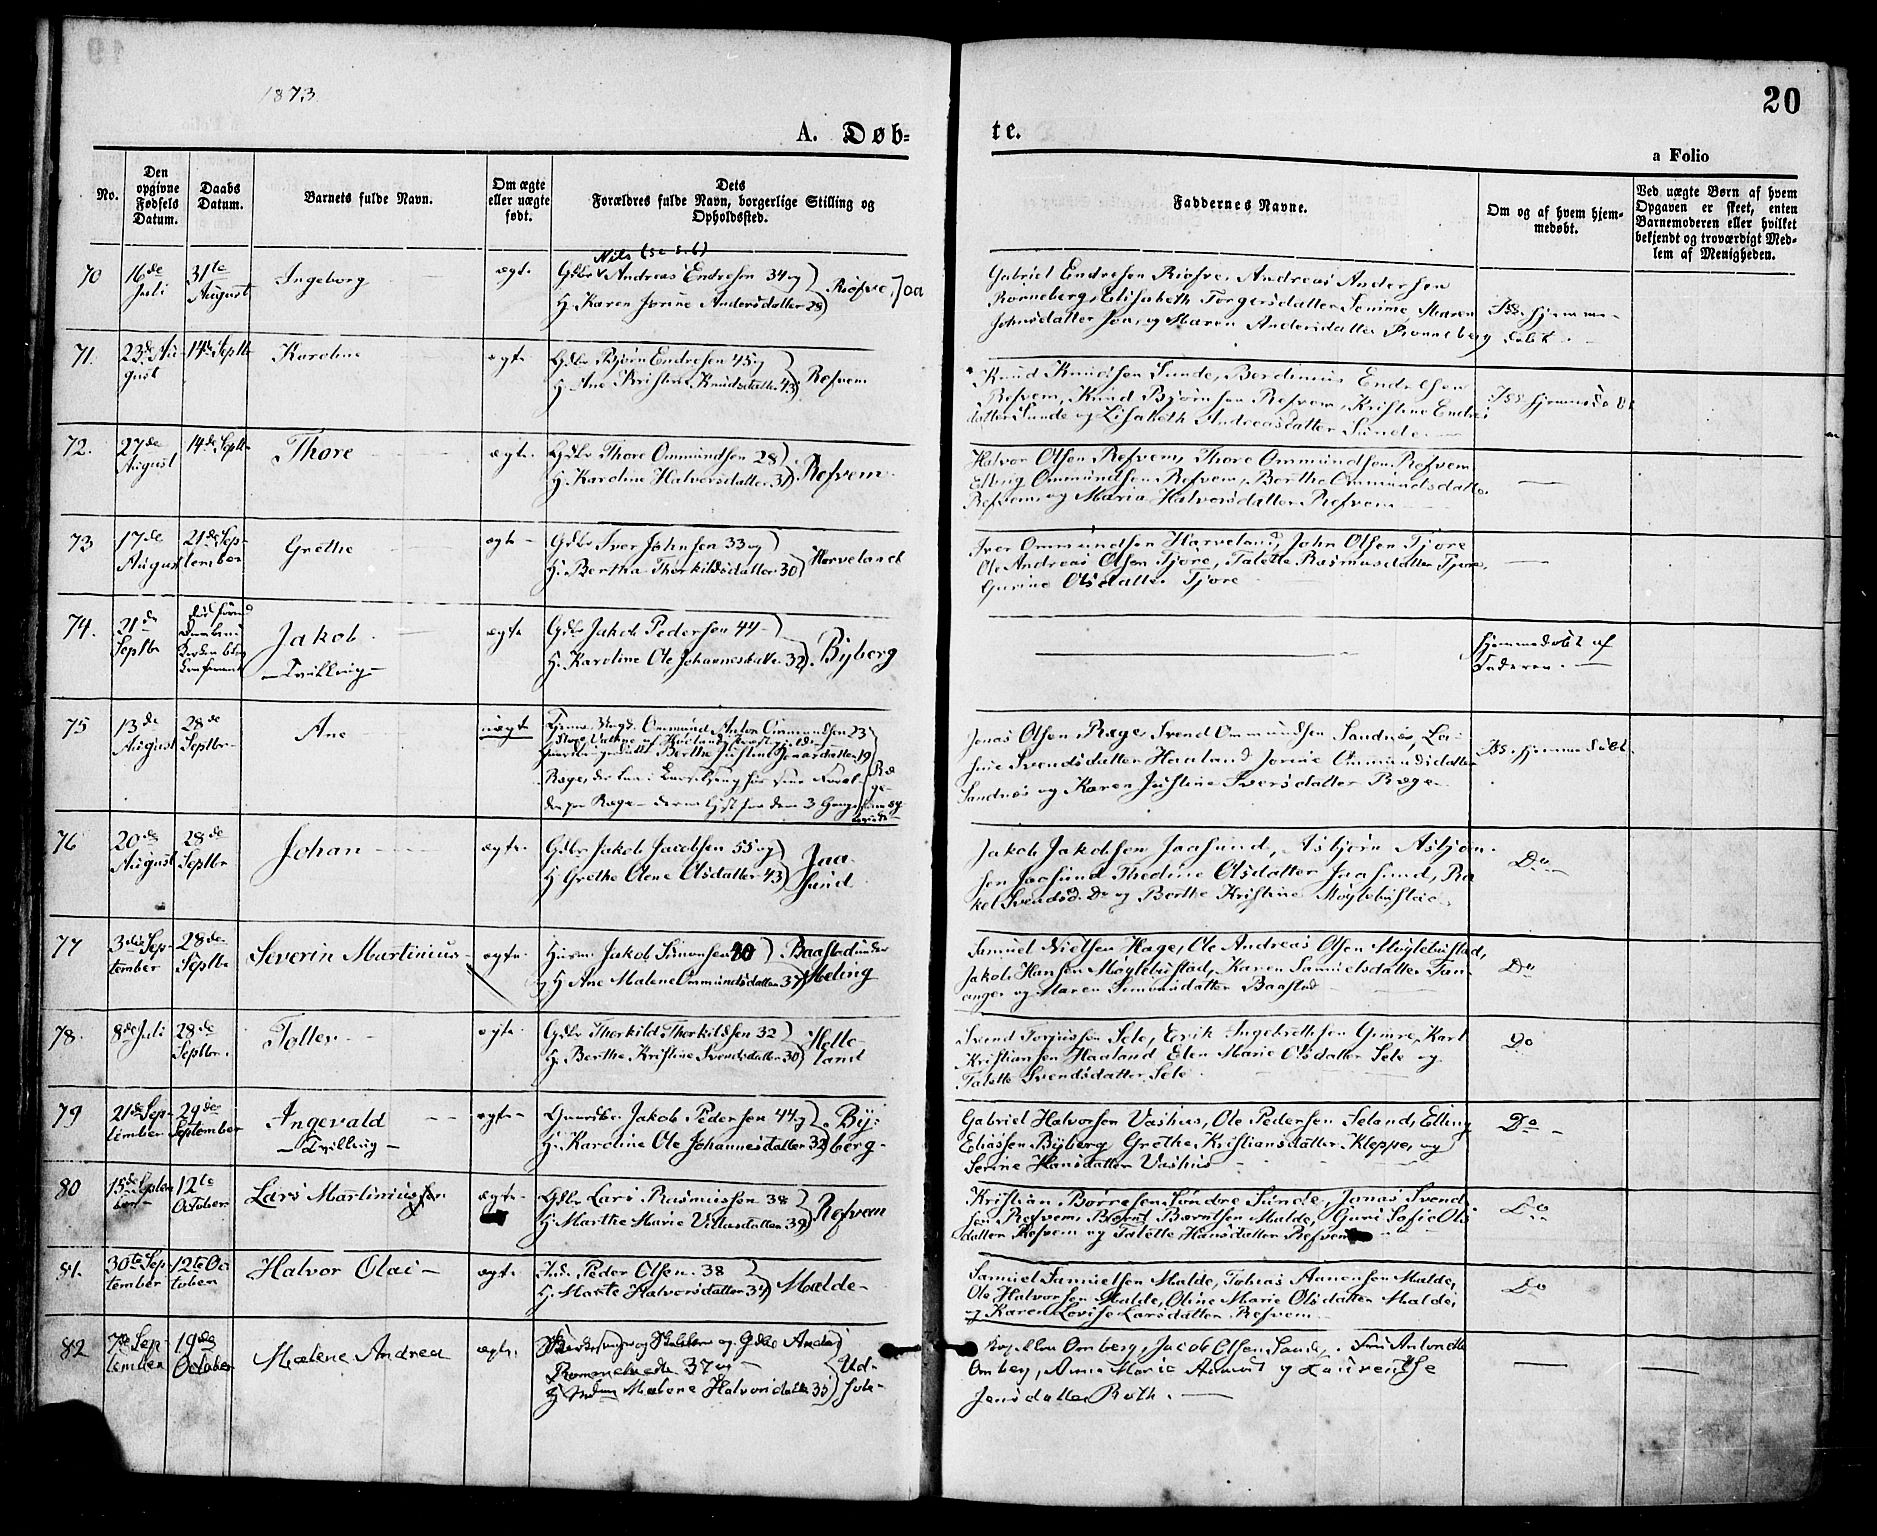 1873
20
A. Døb-
te.
a Folio
No.
Den
opgivne
Fødsels
Datum.
Daabs
Datum.
Barnets fulde Navn.
Om ægte
eller uægte
født.
Dets
Forældres fulde Navn, borgerlige Stilling og
Opholdssted.
Faddernes Navne.
Om og af hvem hjem-
medøbt.
Ved uægte Børn af hvem
Opgaven er skeet, enten
Barnemoderen eller hvilket
bekjendt og troværdigt Med-
lem af Menigheden.
70
16de
Juli
31te
August
Ingeborg
ægte
Nils
Gdbr Andreas Endresen 34 og
H. Karen Jorine Andersdatter 28
Risfve, Joa
Gabriel Endresen Risfve, Andreas Andersen
Ronneberg, Elisabeth Torgersdatter Sømme, Maren
Johnsdatter Joa, og Maren Andersdatter Ronneberg
Iss. hjemme-
døbt.
71.
23de Au-
gust
14de Septbr
Karoline
ægte
Gdbr Bjørn Endresen 45 og
H. Ane Kristine Knudsdatter 43
Refvem
Knud Knudsen Sunde, Berdinius Endresen
Refvem, Knud Bjørnsen Refvem, Kristine Endres
datter Sunde og Lisabeth Andreasdatter Sunde.
Iss. hjemmedøbt
72.
27de
August
14de Septbr
Thore
ægte.
Gdbr Thore Ommundsen 28
H. Karoline Halvorsdatter 31
Refvem
Halvor Olsen Refvem, Thore Ommundsen Refvem
Elling Ommundsen Refvem, Berthe Ommundsdatter
Refvem, og Maria Halvorsdatter Refvem
73
17de
August
21de Sep-
tember
Grethe
ægte
Gdbr Iver Johnsen 33 og
H. Bertha Thorkildsdatter 30
Harveland
Iver Ommundsen Harveland, John Olsen Tjore
Ole Andreas Olsen Tjore, Talette Rasmusdatter Tjore,
Gurine Olsdatter Tjore
74.
21de
Septbr
Jakob
Tvilling
ægte
Gdbr Jakob Pedersen 44
H. Karoline Ole Johannesdatter 32
Byberg
Hjemmedøbt af
Faderen.
75
13de
August
28de
Septbr
Ane
uægte
Ommund Anton Ommundsen 23
Berthe Justine Iversdatter 19
Ræge
Ræge
3 Gange
Jonas Olsen Ræge, Svend Ommundsen Sandnes, Lo-
Svendsdatter Haaland, Jorine Ommundsdatter
Sandnes og Karen Justine Iversdatter Ræge
Iss. hjemmedøbt.
76
20de
August
28de
Septbr
Johan
ægte.
Gdbr Jakob Jacobsen 55 og
H Grethe Olene Olsdatter 43
Jaa-
sund
Jakob Jakobsen Jaasund, Asbjørn Asbjørn-
sen Jaasund, Thedine Olsdatter Jaasund, Ra-
kel Svendsd. Do og Berthe Kristine Møglebustad
Do
77
3die Sep-
tember
28de
Septbr
Severin Martinius
ægte.
Huusm. Jakob Simonsen 40
og H Ane Malene Ommundsdatter 37
Baastad under
Meling
Samuel Nielsen Hage, Ole Andreas Olsen Møglebustad,
Jakob Hansen Møglebustad, Karen Samuelsdatter Tan-
anger og Maren Simonsdatter Baastad
Do
78.
8de Juli
28de
Septbr.
Tollev
ægte.
Gdbr Thorkild Thorkildsen 32
H. Berthe Kristine Svendsdatter 30
Helle-
land
Svend Torjussen Sele, Erik Ingebretsen Gimre, Karl
Kristiansen Haaland, Elen Marie Olsdatter Sele og
Talette Svendsdatter Sele
Do
79
21de Sep-
tember
29de
September
Ingevald
Tvilling
ægte
Jakob Pedersen 44 og
H. Karoline Ole Johannesdatter 32
By-
berg
Gabriel Halvorsen Vashus, Ole Pedersen Seland, Elling
Eliassen Byberg, Grethe Kristiansdatter Kleppe, og
Serine Hansdatter Vashus
Do
80
15de Septem
ber
12te
October
Lars Martiniussen
ægte
Gdbr Lars Rasmussen 38
H. Marthe Marie Villasdatter 39
Refvem
Kristian Børresen Søndre Sunde, Jonas Svend
sen Refvem, Bernt Berntsen Malde, Guri Sofie Ols
datter Refvem og Talette Hansdatter Refvem
Do
81.
30te Sep-
tember
12te Oc-
tober
Halvor Olai
ægte
Ind. Peder Olsen 38
H. Marte Halvorsdatter 37
Malde
Samuel Samuelsen Malde, Tobias Aanensen Malde,
Ole Halvorsen Malde, Oline Marie Olsdatter Malde,
og Karen Lovise Larsdatter Refvem
Do
82
7de Sep-
tember
19de
October
Malene Andrea
ægte.
og Gdbr
37 og
H Malene Halvorsdatter 35
Omberg, Jacob Olsen Sande, Fru Antonette
Omberg, Anne Marie og Laurentse
Jensdatter Roth.